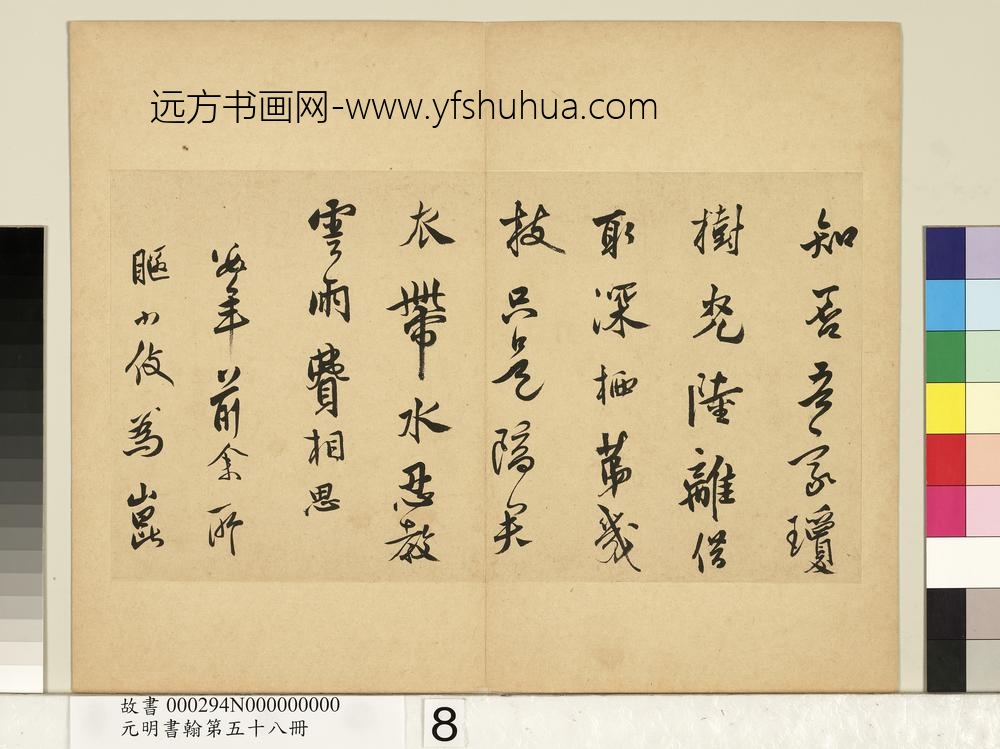 远方书画网-www.yfshuhua.com
知君吾家瓊
樹
陸離借
取深栖第幾
枝只是隔矣
衣帶水忍教
雲雨費相思
前余所
為崑
故書 000294N000000000
元明書翰第五十八冊
8